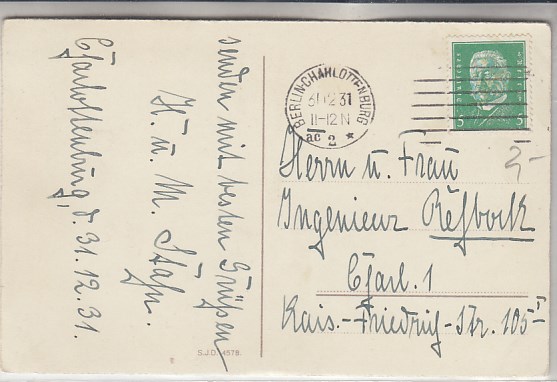 senden mit besten Grüßen
H. u. M. Stahn.
Charlottenburg, d. 31.12.31.
S.J.D. 4578.
BERLIN-CHARLOTTENBURG
31.12.31
11-12 N
ac 2 *
5 5
2,-
Herrn u. Frau
Ingenieur Rehbock
Charl. 1
Kais.-Friedrich-Str. 105I